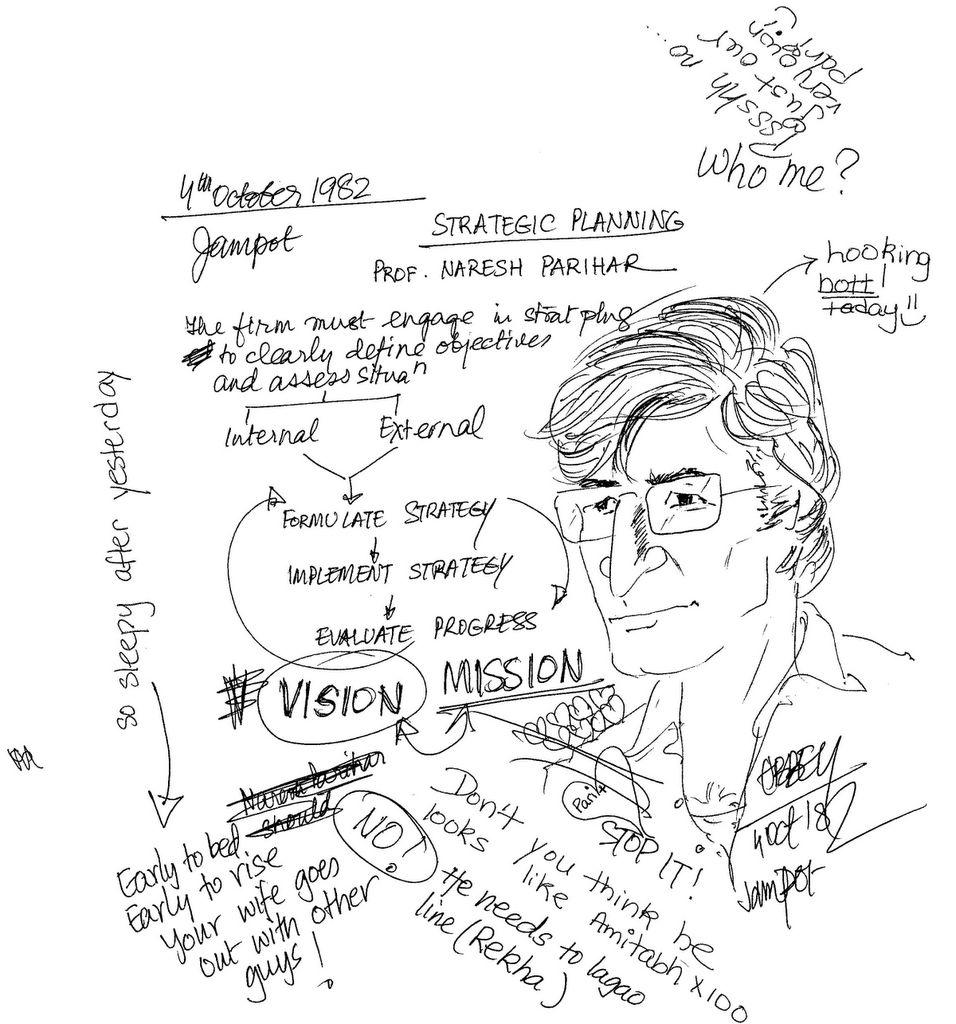 no...
Just our
very own
Who me?
4th October 1982
Jampot
STRATEGIC PLANNING
PROF. NARESH PARIHAR
looking
hott
today!!
The firm must engage in strat plng
to clearly define objectives
and assess situan
Internal External
FORMULATE STRATEGY
IMPLEMENT STRATEGY
EVALUATE PROGRESS
VISION MISSION
so sleepy after yesterday
Naresh Parihar
should
NO!
Early to bed
Early to rise
Your wife goes
out with other
guys!
Don't you think he
looks like Amitabh x100
He needs to lagao
line (Rekha)
STOP IT!
4 Oct 182
Jampot